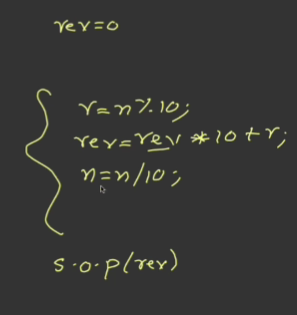 rev=0
r=n%10;
rev=rev*10+r;
n=n/10;
s.o.p(rev)